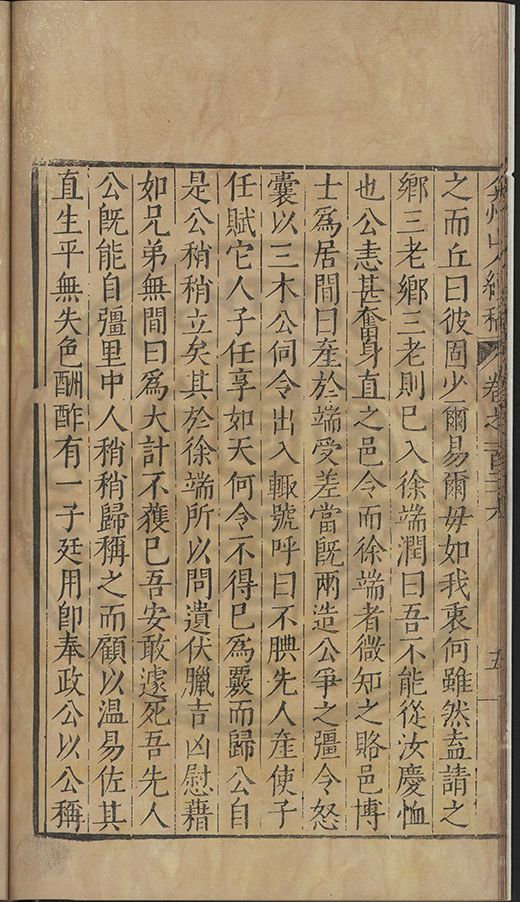 弇州山人續稿 卷之一百 五
之而丘曰彼固少爾易爾毋如我衷何雖然盍請之
鄉三老鄉三老則已入徐端潤曰吾不能從汝慶恤
也公恚甚奮身直之邑令而徐端者微知之賂邑博
士爲居間曰產於端受差當旣兩造公爭之彊令怒
囊以三木公伺令出入輙號呼曰不腆先人產使子
任賦它人子任享如天何令不得已爲覈而歸公自
是公稍稍立矣其於徐端所以問遺伏臘吉凶慰藉
如兄弟無間曰爲大計不獲已吾安敢遽死吾先人
公旣能自彊里中人稍稍歸稱之而顧以溫易佐其
直生平無失色酬酢有一子廷用卽奉政公以公稱